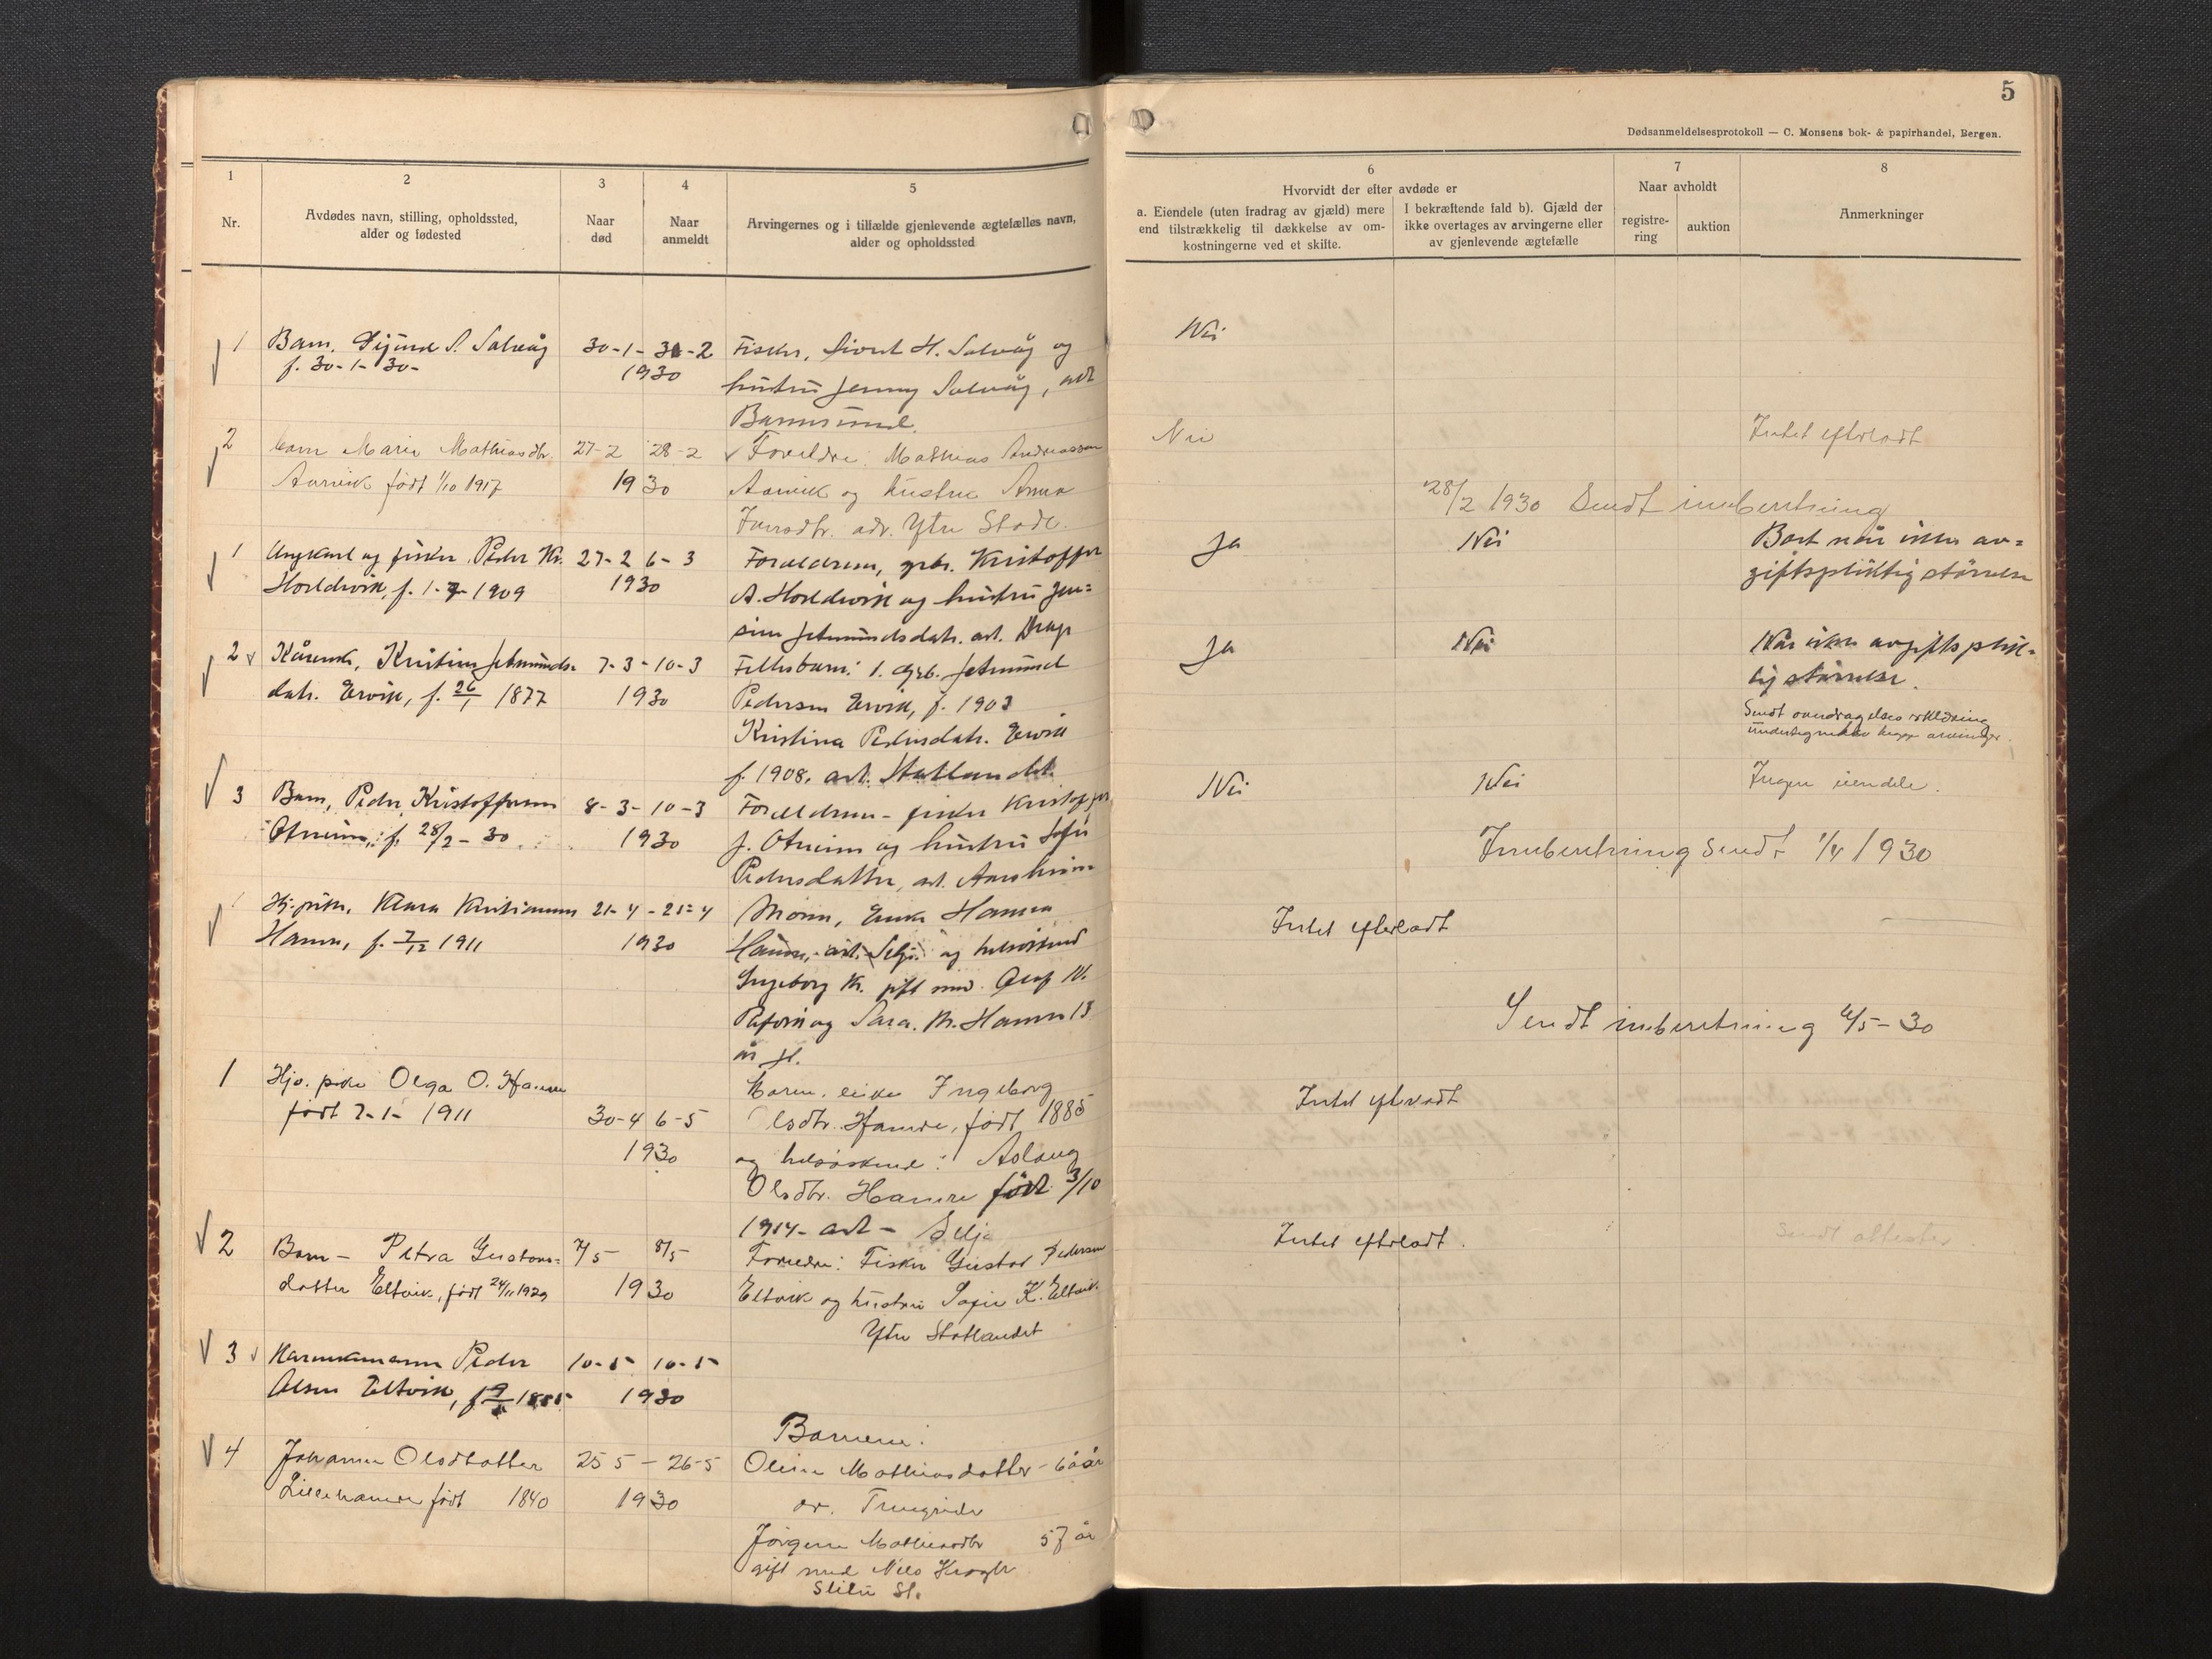 5
Dødsanmeldelsesprotokoll — C. Monsens bok- & papirhandel, Bergen.
1
Nr.
2
Avdødes navn, stilling, opholdssted,
alder og fødested
3
Naar
død
4
Naar
anmeldt
5
Arvingernes og i tilfælde gjenlevende ægtefælles navn,
alder og opholdssted
6
Hvorvidt der efter avdøde er
a. Eiendele (uten fradrag av gjæld) mere
end tilstrækkelig til dækkelse av om-
kostningerne ved et skifte.
I bekræftende fald b). Gjæld der
ikke overtages av arvingerne eller
av gjenlevende ægtefælle
7
Naar avholdt
registre-
ring
auktion
8
Anmerkninger
1 Barn, S. Salvåg 30-1- -2 Fisker, Sivert H. Salvåg og Nei
f. 30-1-30- 1930 hustru Jenny Salvåg, adr
Barmsund.
2 barn Marie Mathiasdtr. 27-2 28-2 Foreldre: Mathias Andreassen Nei Intet efterladt
Aarvik født 1/10 1917 1930 Aarvik og hustru Anna
adr. Ytre Stadt.
28/2 1930 Sendt innberetning
1 Ungkarl og fisker Peder Kr. 27-2 6-3 Foreldrene, grbr. Kristoffer Ja Nei Bort når ikke av=
Hoddevik, f. 1-7-1909 1930 A. Hoddevik og hustru Jen= giftspliktig størrelse
sine Jetmundsdatr. adr. Drage
2 Kårenke, Kristine Jetmunds- 7-3-10-3 Fellesbarn: 1. Grb. Jetmund Ja Nei Når ikke avgiftsplik-
datr. Ervik, f. 26/1 1877 1930 Pedersen Ervik, f. 1903 tig størrelse.
Kristina Pedersdatr. Ervik Sendt
f. 1908, adr. Statlandet. begge arvinger.
3 Barn, Peder Kristoffersen 8-3-10-3 Foreldrene - fisker Kristoffer Nei Nei Ingen eiendele.
Otneim, f. 28/2-30 1930 J. Otneim og hustru Sofie
Pedersdatter, adr. Aarsheim
Innberetning Sendt 1/4 1930
1 Hj. pike, Klara Kristiansen 21-4-25-4 Moren, Enke Hansen Intet efterladt
Hamre, f. 7/12 1911 1930 Hamre, adr. Selje og helsøskend
Ingeborg K. gift med
og Sara. M. Hamre 13
år
Sendt innberetning 6/5-30
1 Hjv. pike Olga O. Hamre Ingeborg
født 7-1-1911 30-4 6-5 Olsdtr. Hamre, født 1885 Intet efterladt
1930 og helsøskend: Aslaug
Olsdtr. Hamre født 3/10
1914- adr - Selje
2 Barn - Petra Gustavs= 7/5- 8/5- Foreldre: Fisker Gustav Pedersen Intet efterladt. Sendt attester
datter Eltvik, født 24/11 1929 1930 Eltvik og hustru Sofie K. Eltvik.
Ytre Statlandet
3 Peder 10-5 10-5
Olsen Eltvik, 1930
Barnene:
4 Johanne Olsdtatter 25 5 - 26-5 Oline Mathiasdatter -
Lillehamre født 1840 1930
Jørgine Mathiasdtr 57 år
gift med Nils Krogh